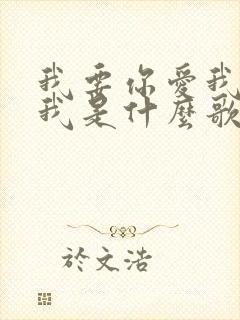 我要你愛我
我是什麼歌
於文浩